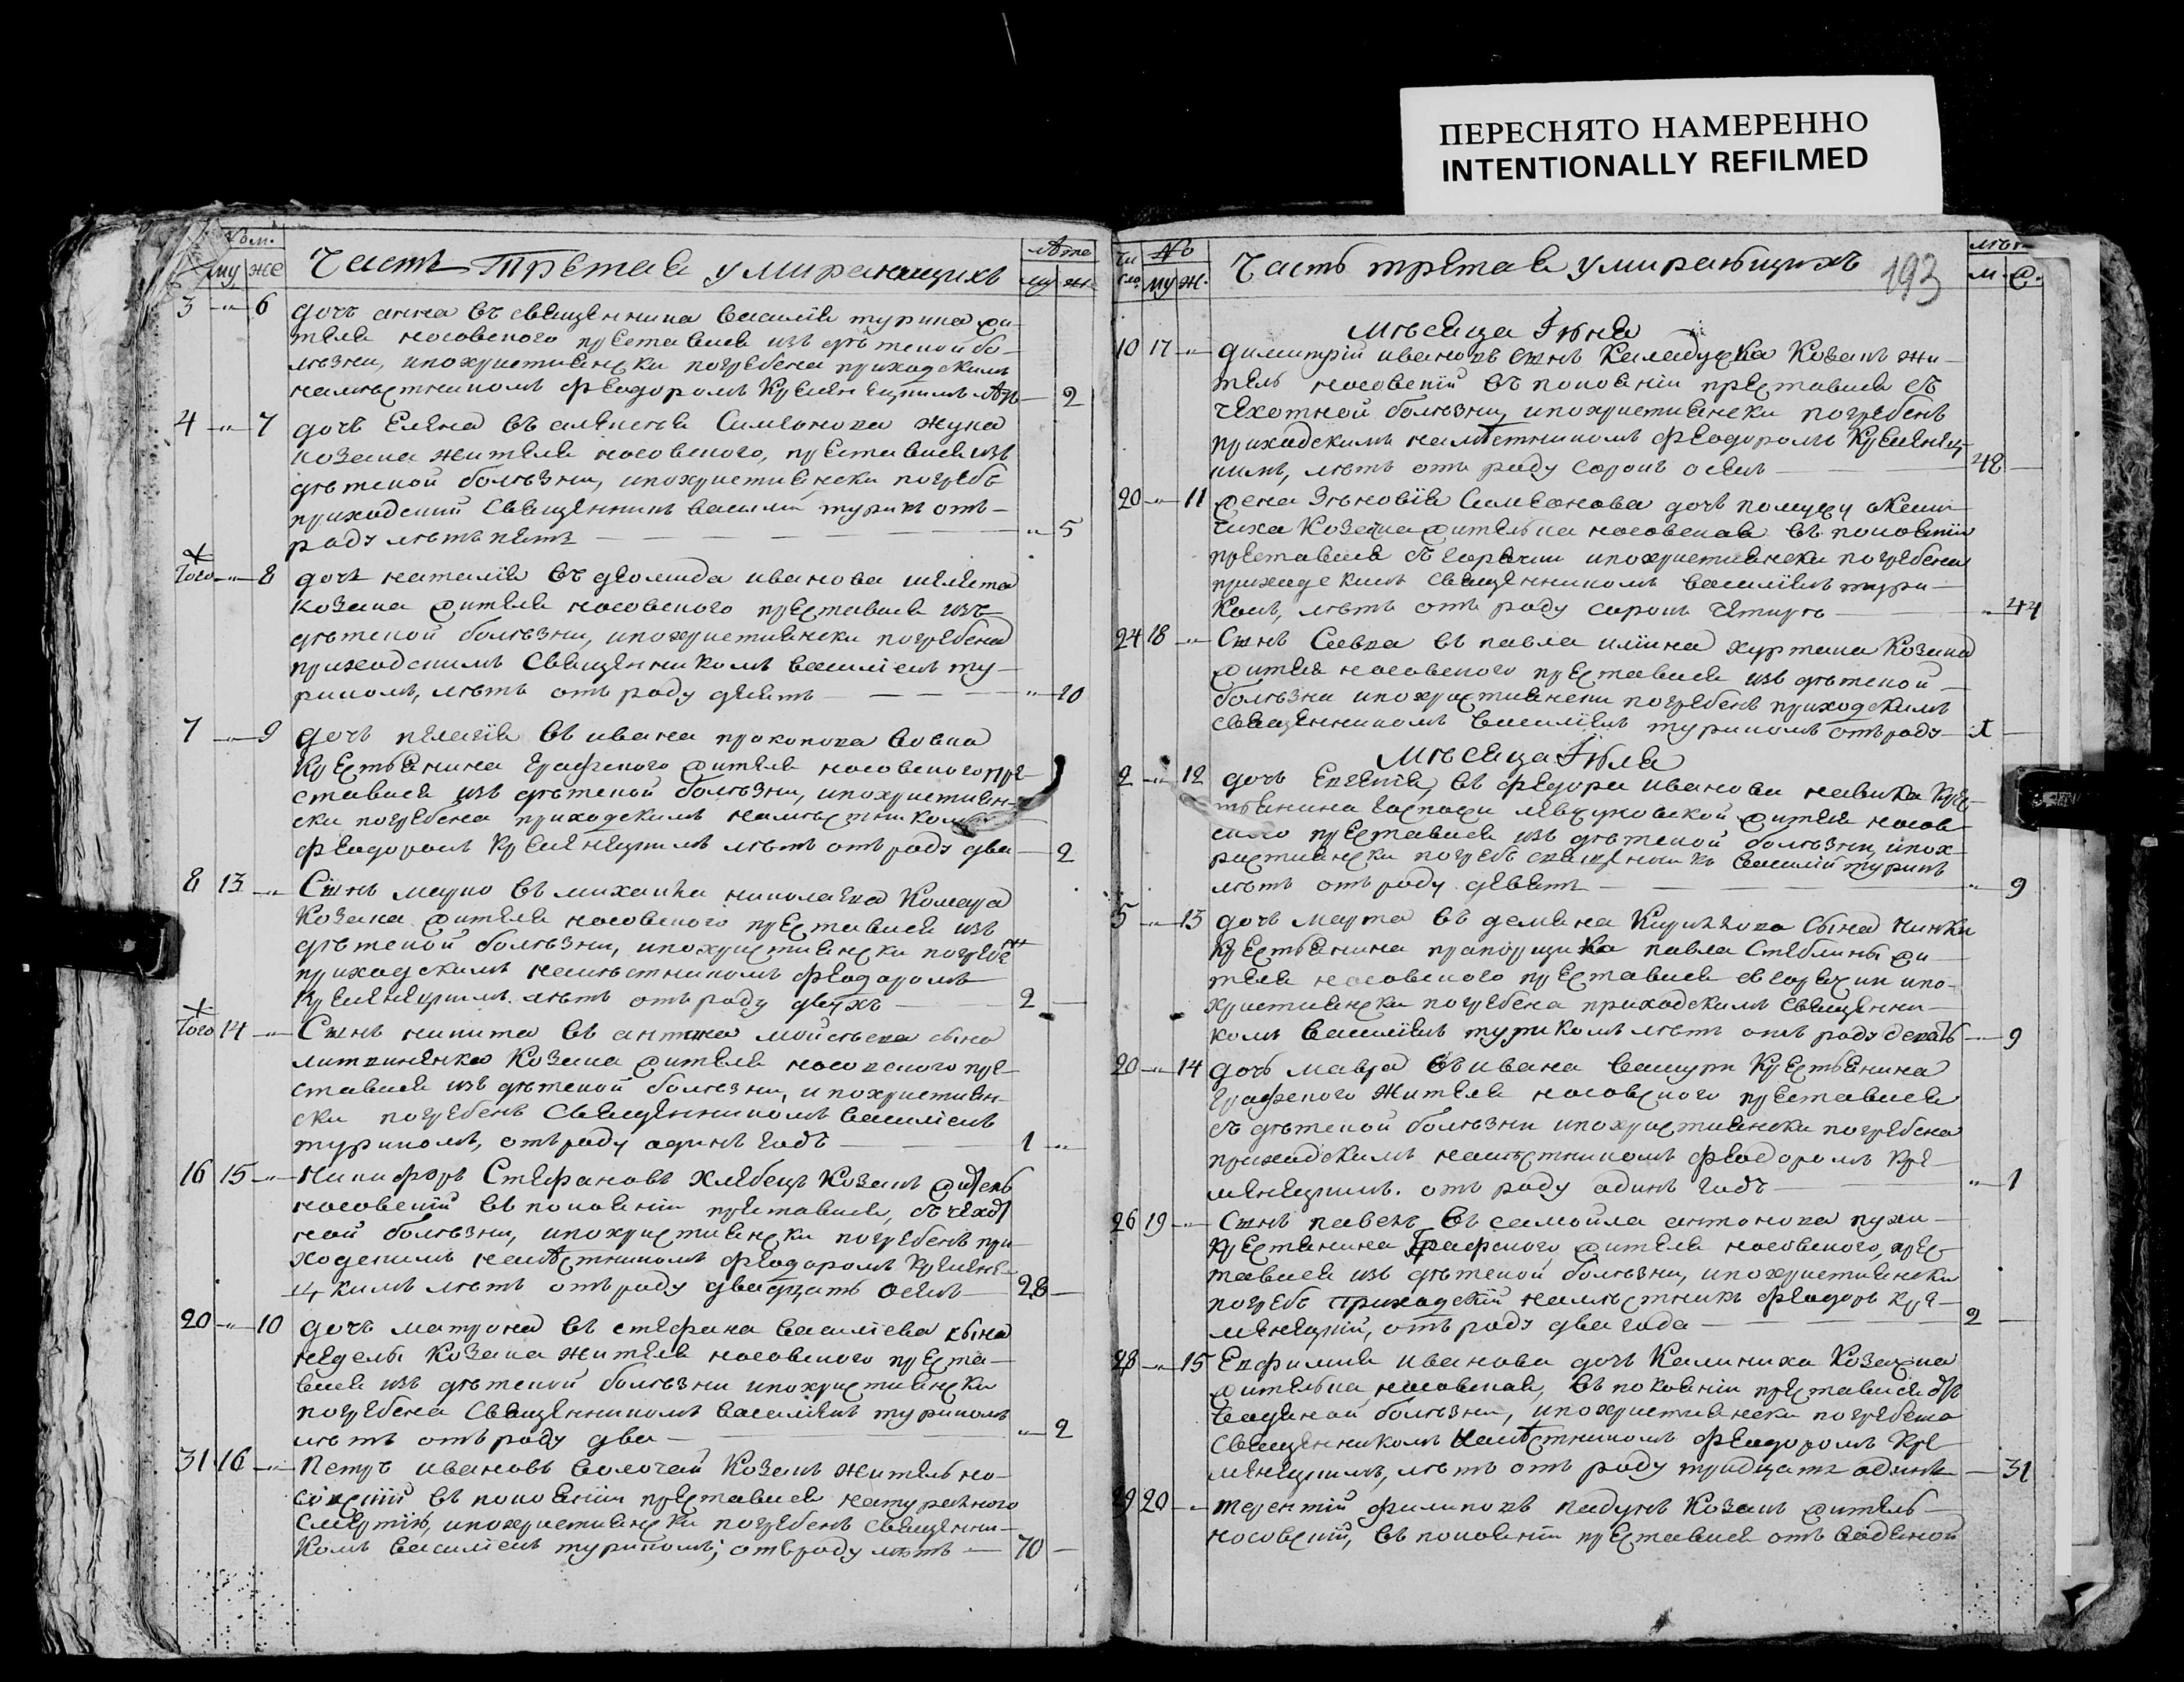 ПЕРЕСНЯТО НАМЕРЕННО
INTENTIONALLY REFILMED
му же Часть Третая умирающихъ лѣта му ж
3 6 дочь анна въ священника василія турика жи-
теля носовского преставися изъ дѣтской бо-
лѣзни, ипохристиянски погребена приходскимъ
намѣстникомъ Феодоромъ Кременецкимъ лѣтъ 2
4 7 дочь Елена въ алексея Симеонова жука
козака жителя носовского, преставися изъ
дѣтской болѣзни, ипохристиянски погребъ
приходский Священникъ василий турикъ отъ
роду лѣтъ пять 5
Того 8 дочь наталія въ деомида иванова шелета
козака жителя носовского преставися изъ
дѣтской болѣзни, ипохристиянски погребена
приходскимъ Священникомъ василіемъ ту-
рикомъ, лѣтъ отъ роду десять 10
7 9 дочь пелагія въ ивана прокопова вовка
Крестьянина графского жителя носовского пре-
ставися изъ дѣтской болѣзни, ипохристиян-
ски погребена приходскимъ намѣстникомъ
Феодоромъ Кременецкимъ лѣтъ отъ роду два 2
8 13 Сынъ марко въ михаила николаева Комара
Козака жителя носовского преставися изъ
дѣтской болѣзни, ипохристиянски погребенъ
приходскимъ намѣстникомъ Феодоромъ
Кременецкимъ лѣтъ отъ роду двухъ 2
Того 14 Сынъ никита въ антона мойсѣева сына
литвиненка Козака жителя носовского пре-
ставися изъ дѣтской болѣзни, ипохристиян-
ски погребенъ Священникомъ василіемъ
турикомъ, отъ роду одинъ годъ 1
16 15 Никифоръ Стефановъ хлебецъ Козакъ житель
носовскій въ покояніи преставися, съ чехот
ной болѣзни, ипохристиянски погребенъ при-
ходскимъ намѣстникомъ Феодоромъ Кремене-
цкимъ лѣтъ отъ роду двадцать осемъ 28
20 10 дочь матрона въ стефана василіева сына
недели Козака жителя носовского преста-
вися изъ дѣтской болѣзни ипохристиянски
погребена Священникомъ василіемъ турикомъ
лѣтъ отъ роду два 2
31 16 Петръ ивановъ волочай Козакъ житель но-
совскій въ покояніи преставися натурального
смертію, ипохристиянски погребенъ Священни-
комъ василіемъ турикомъ, отъ роду лѣтъ 70
Чи сло № му ж. Часть третая умирающихъ 193 м.
Мѣсяца Іюня
10 17 димитрій ивановъ сынъ Каладуска Козакъ жи-
тель носовскій въ покояніи преставися съ
чехотной болѣзни, ипохристиянски погребенъ
приходскимъ намѣстникомъ Феодоромъ Кременец-
кимъ, лѣтъ отъ роду сорокъ осемъ 48
20 11 жена Зѣновія Симеонова дочь
Козачка жителька носовская въ покояніи
преставися съ горячки ипохристиянски погребена
приходскимъ Священникомъ василіемъ тури-
комъ, лѣтъ отъ роду сорокъ четыре 44
24 18 Сынъ Савва въ павла иліина хуртака Козака
жителя носовского преставися изъ дѣтской
болѣзни ипохристиянски погребенъ приходскимъ
священникомъ василіемъ турикомъ отъ роду 1
Мѣсяца Іюля
2 12 дочь Евгенія въ Феодора иванова новика Кре-
стьянина госпожи жителя носов
ского преставися изъ дѣтской болѣзни, ипох-
ристиянски погребъ священникъ василій турикъ
лѣтъ отъ роду девять 9
5 13 дочь марта въ демяна Кирилова сына
Крестьянина прапорщика павла Стеблины жи-
теля носовского преставися съ горячки ипо-
християнски погребена приходскимъ Священни-
комъ василіемъ турикомъ лѣтъ отъ роду девять 9
20 14 дочь мавра въ ивана вашури Крестьянина
графского жителя носовского преставися
съ дѣтской болѣзни ипохристиянски погребена
приходскимъ намѣстникомъ Феодоромъ Кре-
менецкимъ. отъ роду одинъ годъ 1
26 19 Сынъ павелъ въ самойла антонова
Крестянина Графского жителя носовского, прес-
тавися изъ дѣтской болѣзни, ипохристиянски
погребъ приходскій намѣстникъ Феодоръ Кре-
менецкій, отъ роду два года 2
28 15 Евфимия иванова дочь Калиниха Козачка
жителька носовская, въ покояніи преставися отъ
водяной болѣзни, ипохристиянски погребена
Священникомъ намѣстникомъ Феодоромъ Кре
менецкимъ, лѣтъ отъ роду тридцать одинъ 31
29 20 терентій филиповъ падунъ Козакъ житель
носовскій, въ покояніи преставися отъ водяной